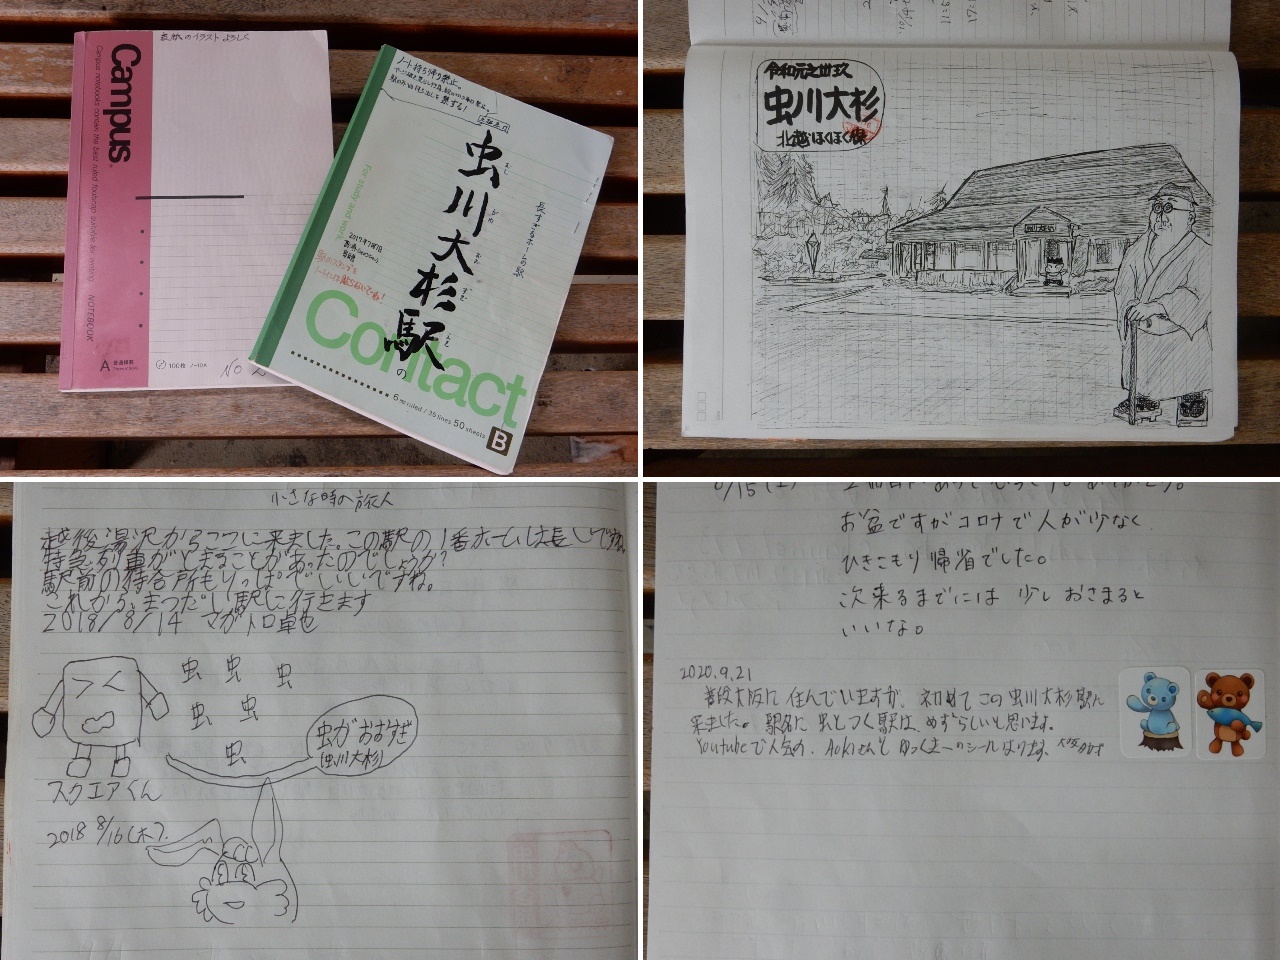 表紙のイラストよろしく
Campus
Campus notebooks contain the best ruled foolscap suitable for writing.
NOTEBOOK
A 普通横罫
100枚 ノ-10A
No 2
ノート持ち帰り禁止。
を禁ずる!
虫川大杉駅の
むし がわ おお すぎ えき
長すぎるホームの駅
For study and work
2017年7月7日
駅のスタンプを
ノートに
Contact
6 mm ruled / 35 lines 50 sheets
B
令和元之世紀
虫川大杉
北越ほくほく線
小さな時の旅人
越後湯沢からここに来ました。この駅の1番ホームは長いですね。
特急列車がとまることがあったのでしょうか?
駅前の待合所もりっぱでいいですね。
これから、まつだい駅に行きます
2018/8/14 マガトロ卓也
虫 虫 虫
虫 虫
虫
虫がおおすぎ
(虫川大杉)
スクエアくん
2018 8/16(木).
8/15(土)
お盆ですがコロナで人が少なく
ひきこもり帰省でした。
次来るまでには 少し おさまると
いいな。
2020.9.21
普段大阪に住んでいますが、初めてこの虫川大杉駅に
来ました。駅名に虫とつく駅は、めずらしいと思います。
Youtubeで人気の、Aokiさんとゆっくまーのシールはります。